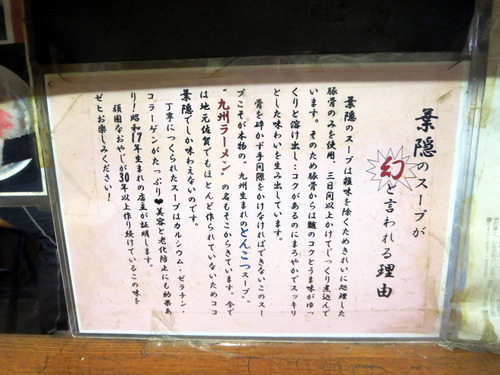 葉隠のスープが
幻と言われる理由
葉隠のスープは雑味を除くためきれいに処理した
豚骨のみを使用、三日間以上かけてじっくり煮込んで
います。そのため豚骨からは髄のコクとうま味がゆっ
くりと溶け出し…コクがあるのにまろやかでスッキリ
とした味わいを生み出しています。
骨を砕かず手間隙をかけなければできないこのスー
プこそが本物の〝九州生まれのとんこつスープ〟
〝九州ラーメン〟の名もそこからきています。今で
は地元佐賀でもほとんど作られていないためココ
葉隠でしか味わえないのです。
丁寧につくられたスープはカルシウム・ゼラチン・
コラーゲンがたっぷり♥美容と老化防止にも効果あ
り！昭和17年生まれの店主が証明します。
頑固なおやじが30年以上作り続けているこの味を
ゼヒお楽しみください！